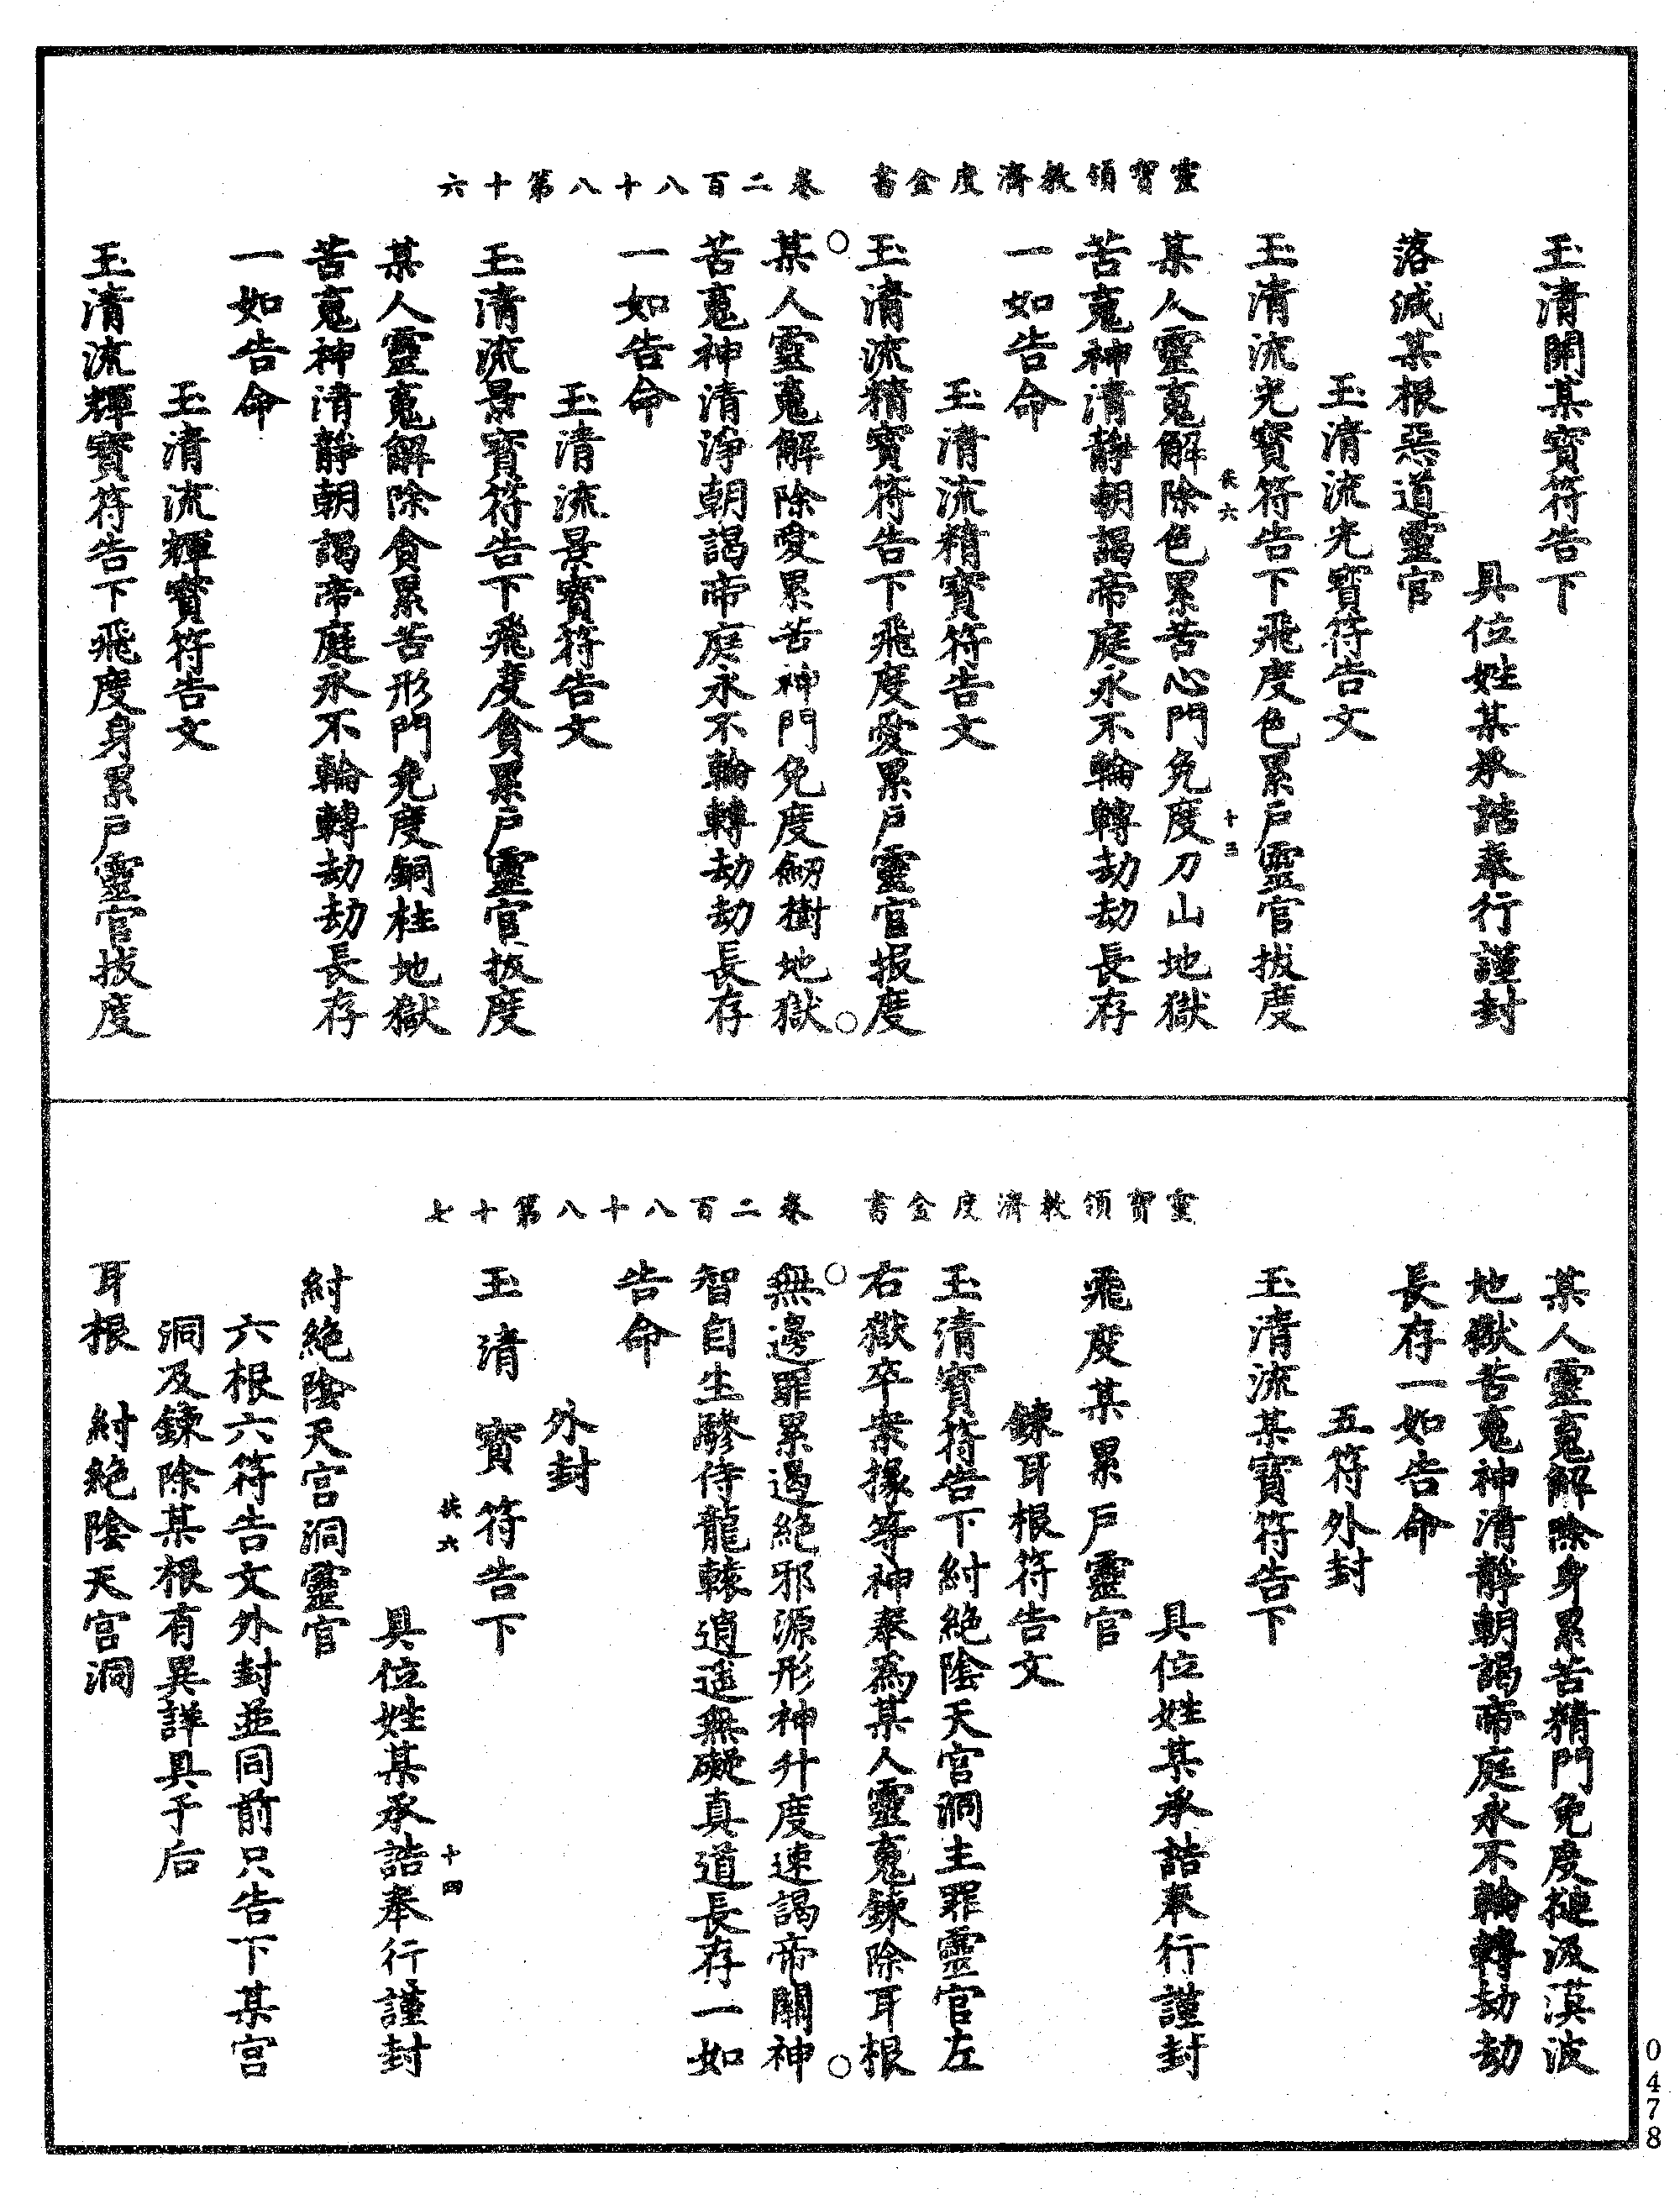 靈寶領教濟度金書　卷二百八十八第十六
玉清開某寶符告下
具位姓某承誥奉行謹封
落滅某根惡道靈官
玉清流光寶符告文
玉清流光寶符告下飛度色累戶靈官拔度
某人靈䰟解除色累苦心門免度刀山地獄
苦䰟神清靜朝謁帝庭永不輪轉劫劫長存
一如告命
玉清流精寶符告文
玉清流精寶符告下飛度愛累戶靈官拔度
某人靈䰟解除愛累苦神門免度劒樹地獄
苦䰟神清淨朝謁帝庭永不輪轉劫劫長存
一如告命
玉清流景寶符告文
玉清流景寶符告下飛度貪累戶靈官拔度
某人靈䰟解除貪累苦形門免度銅柱地獄
苦䰟神清靜朝謁帝庭永不輪轉劫劫長存
一如告命
玉清流輝寶符告文
玉清流輝寶符告下飛度身累戶靈官拔度
靈寶領教濟度金書　卷二百八十八第十七
某人靈䰟解除身累苦精門免度搥汲溟波
地獄苦䰟神清靜朝謁帝庭永不輪轉劫劫
長存一如告命
五符外封
玉清流某寶符告下
具位姓某承誥奉行謹封
飛度某累戶靈官
鍊耳根符告文
玉清寶符告下紂絕陰天宮洞主罪靈官左
右獄卒衆掾等神奉爲某人靈䰟鍊除耳根
無邊罪累遏絕邪源形神升度速謁帝關神
智自生驂侍龍轅逍遥無礙真道長存一如
告命
外封
玉清　寶符告下
具位姓某承誥奉行謹封
紂絕陰天宮洞靈官
六根六符告文外封並同前只告下某宮
洞及鍊除某根有異譁具于后
耳根　紂絕陰天宮洞
十三
十四
0478